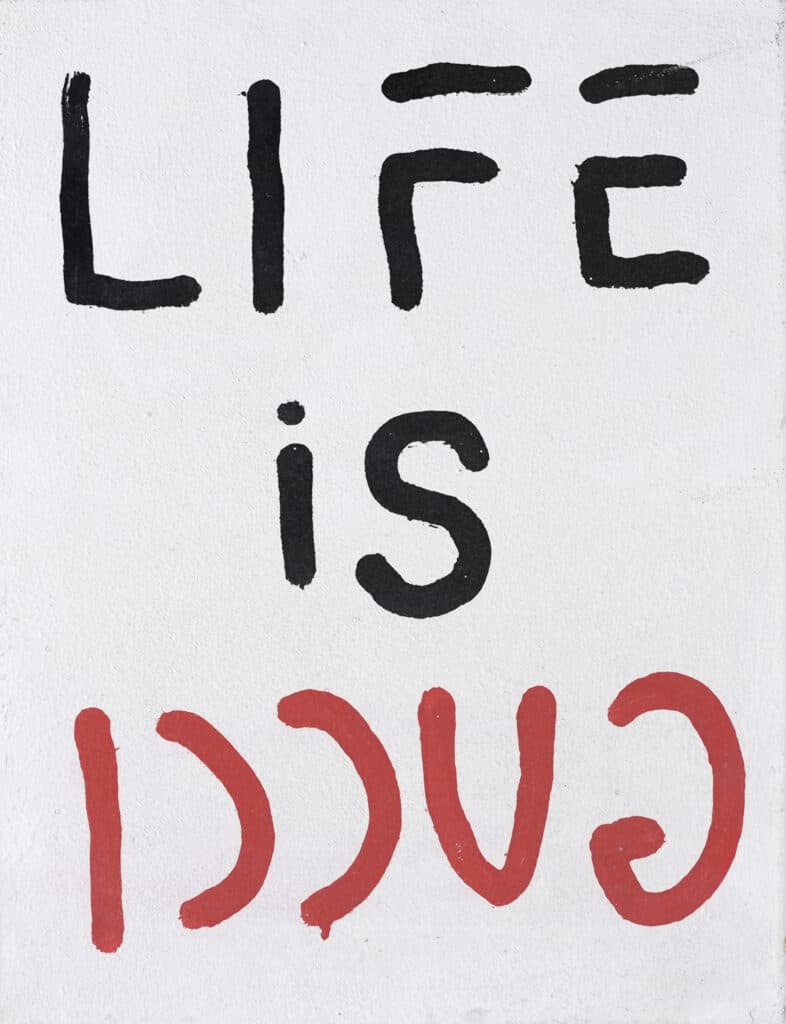 LIFE
iS
GUCCI